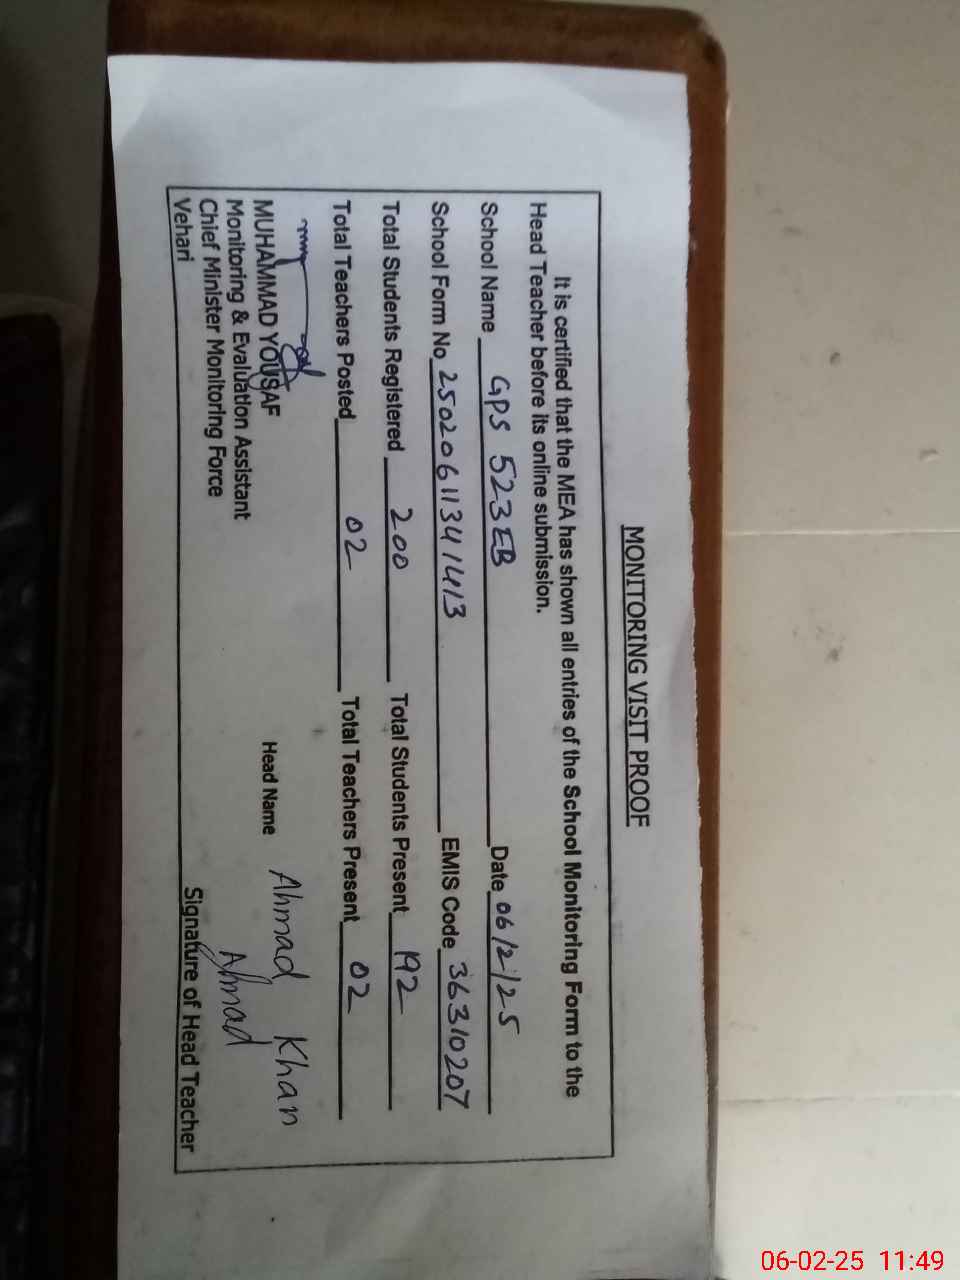 MONITORING VISIT PROOF
It is certified that the MEA has shown all entries of the School Monitoring Form to the
Head Teacher before its online submission.
School Name GPS 523EB Date 06/2/25
School Form No 250206113414413 EMIS Code 36310207
Total Students Registered 200 Total Students Present 192
Total Teachers Posted 02 Total Teachers Present 02
MUHAMMAD YOUSAF Head Name Ahmad Khan
Monitoring & Evaluation Assistant Ahmad
Chief Minister Monitoring Force
Vehari Signature of Head Teacher
06-02-25 11:49